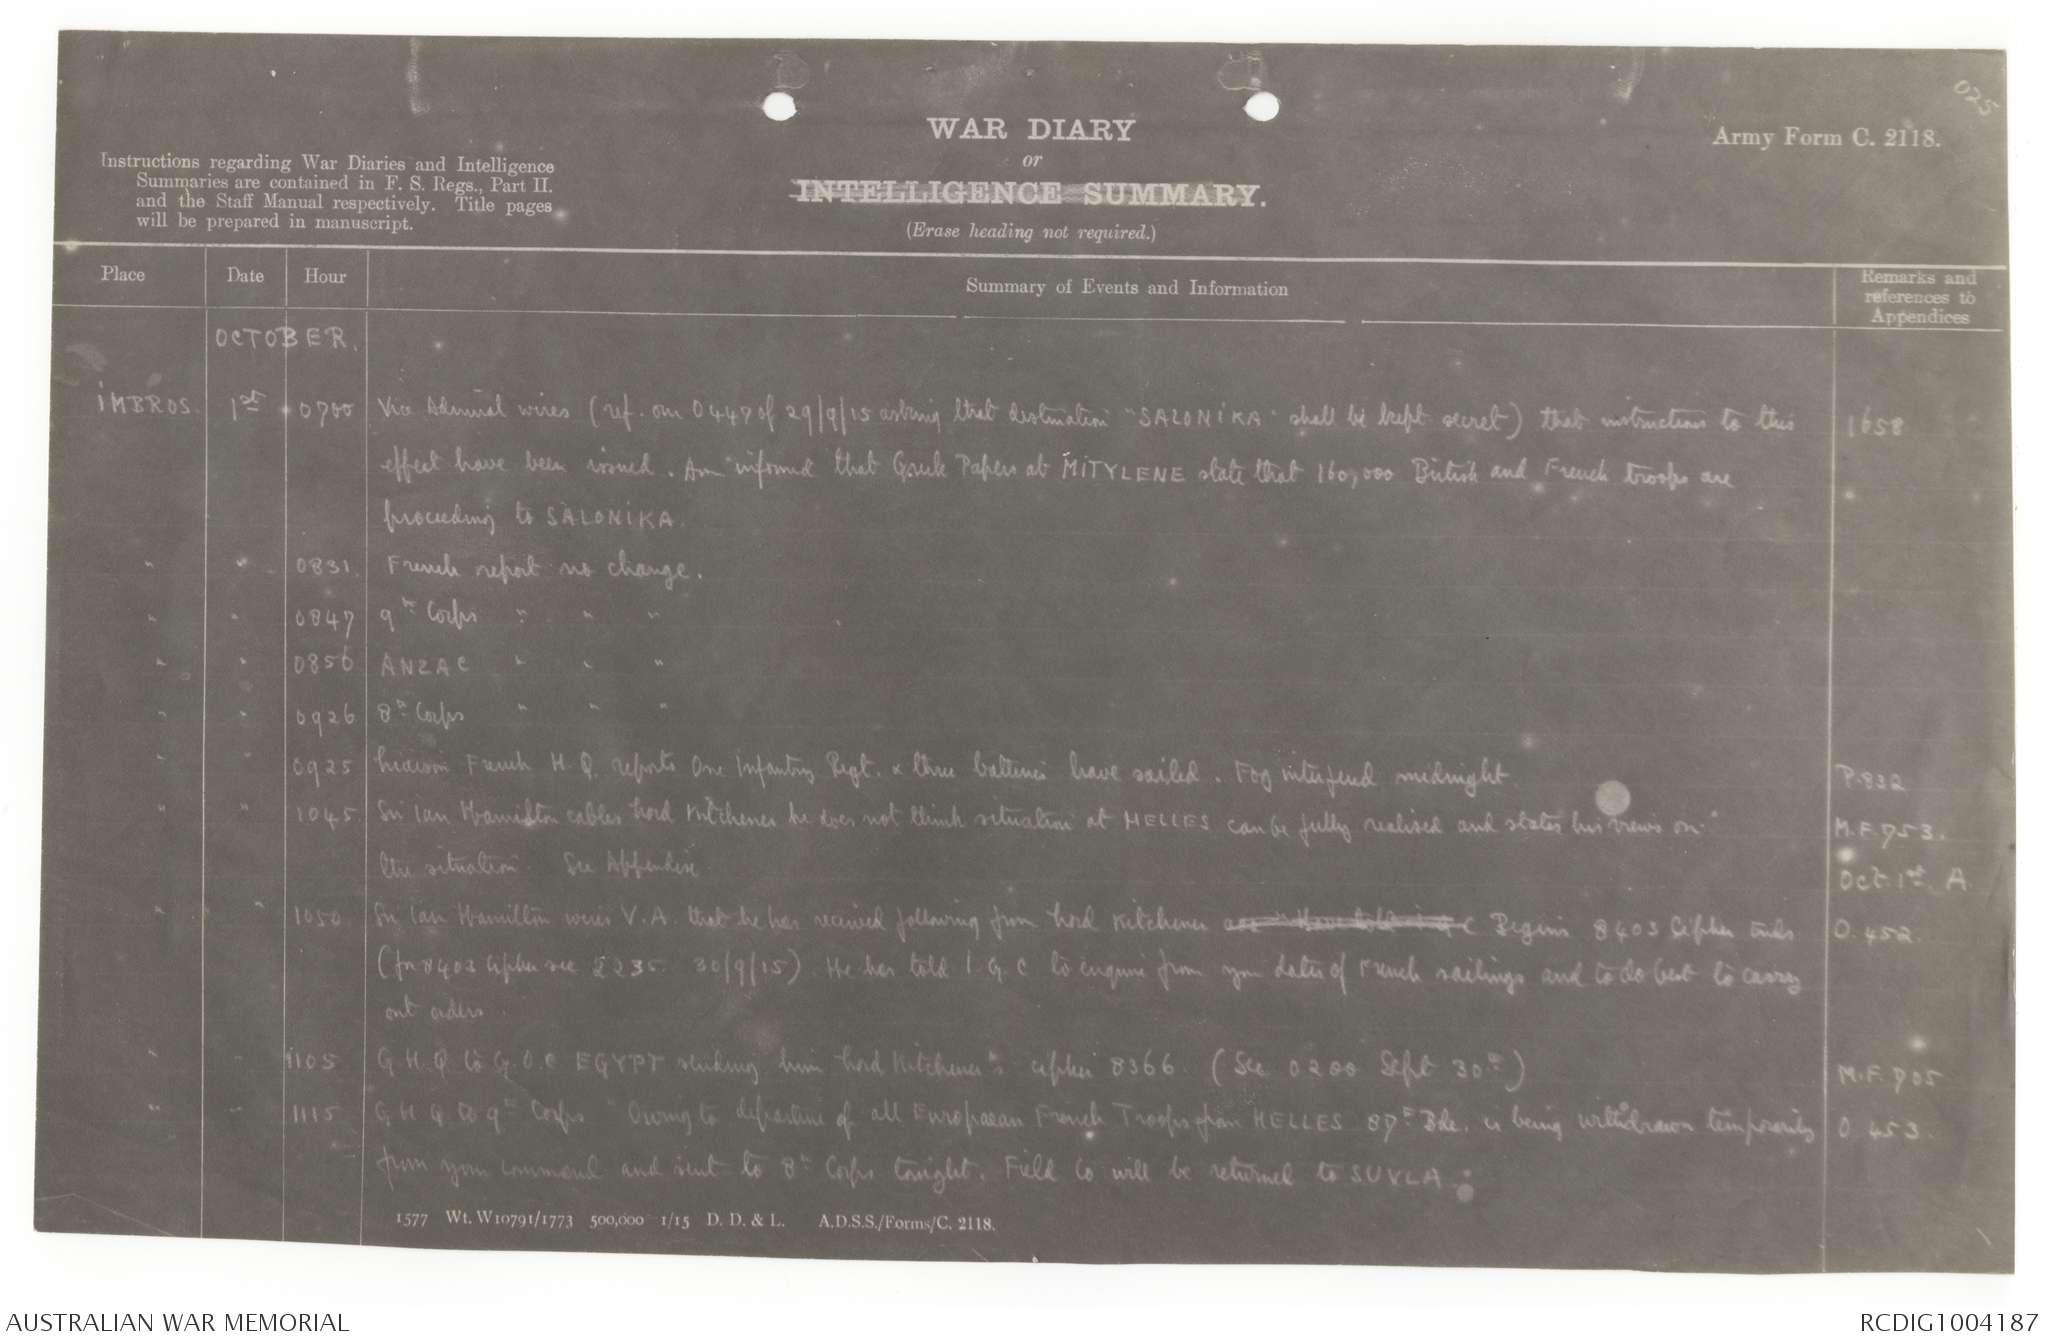 025
WAR DIARY
or
INTELLIGENCE SUMMARY.
(Erase heading not required.)
Army Form C. 2118.
Instructions regarding War Diaries and Intelligence
Summaries are contained in F. S. Regs., Part II.
and the Staff Manual respectively. Title pages
will be prepared in manuscript.
Place Date Hour Summary of Events and Information Remarks and references to Appendices
OCTOBER.
IMBROS. 1st 0700 Vice Admiral wires (ref. our 0447 of 29/9/15 asking that destination "SALONIKA" shall be kept secret) that instructions to this 1658
effect have been issued. Am informed that Greek Papers at MITYLENE state that 160,000 British and French troops are
proceeding to SALONIKA.
" " 0831. French report no change.
" " 0847 9th Corps " " "
" " 0856 ANZAC " " "
" " 0926 8th Corps " " "
" " 0925 Liaison French H.Q. reports One Infantry Regt. & three batteries have sailed. Fog interfered midnight. P.832
" " 1045 Sir Ian Hamilton cables Lord Kitchener he does not think situation at HELLES can be fully realised and states his views on M.F.753.
the situation. See Appendix Oct. 1st. A
" " 1050. Sir Ian Hamilton wires V.A. that he has received following from Lord Kitchener Begins 8403 Cipher ends O.452.
(for 8403 Cipher see 2235. 30/9/15). He has told I.G.C to enquire from you dates of French sailings and to do best to carry
out orders.
" " 1105 G.H.Q to G.O.C EGYPT sending him Lord Kitchener's cipher 8366. (See 0200 Sept 30th) M.F.705
" " 1115 G.H.Q to 9th Corps "Owing to departure of all European French Troops from HELLES 87th Bde. is being withdrawn temporarily O.453.
from your command and sent to 8th Corps tonight. Field Co will be returned to SUVLA.
1577 Wt. W10791/1773 500,000 1/15 D. D. & L. A.D.S.S./Forms/C. 2118.
AUSTRALIAN WAR MEMORIAL
RCDIG1004187